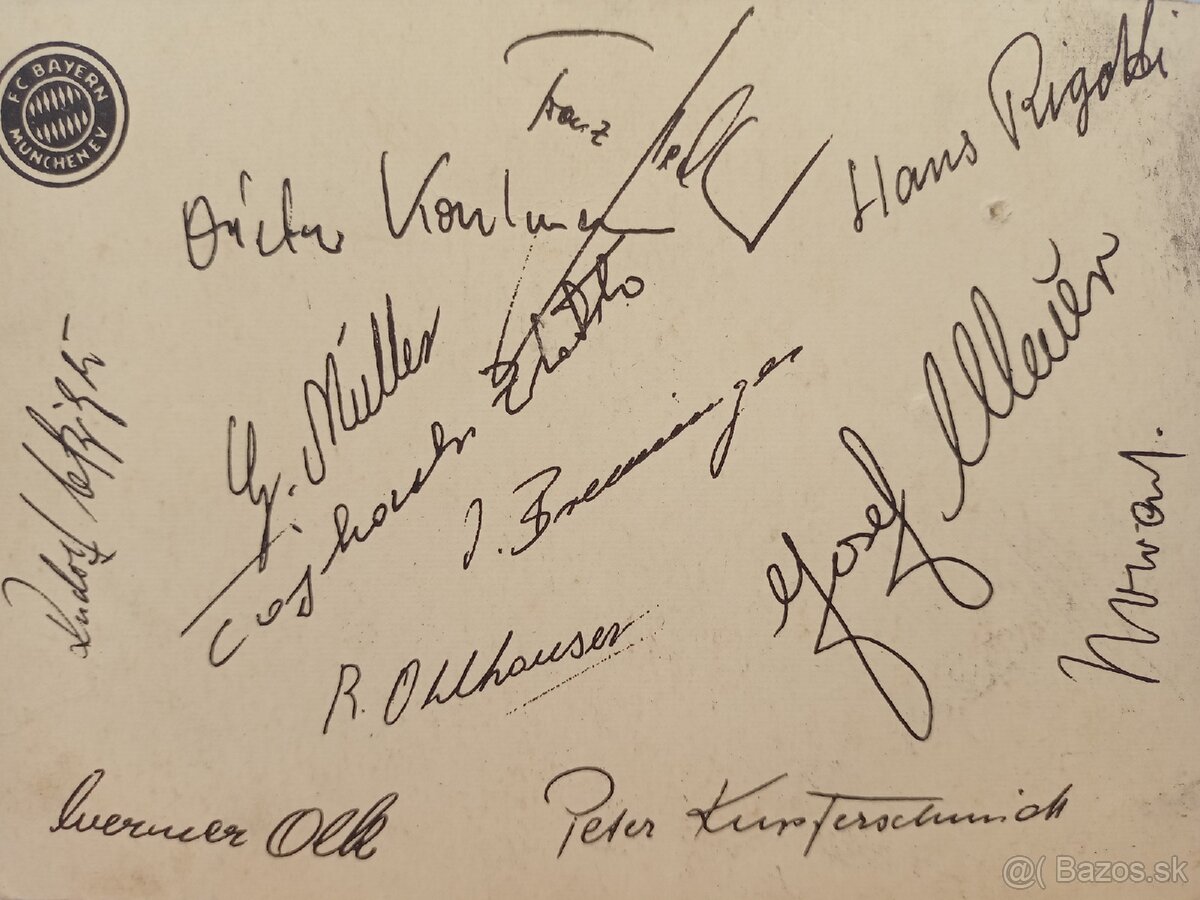 FC BAYERN
MÜNCHEN EV
Franz
Hans Rigotti
Dieter Koulmann
G. Müller
J. Brenninger
Josef Maier
Nowak.
Rudolf
R. Ohlhauser
Werner Olk
Peter Kupferschmidt
@( Bazos.sk